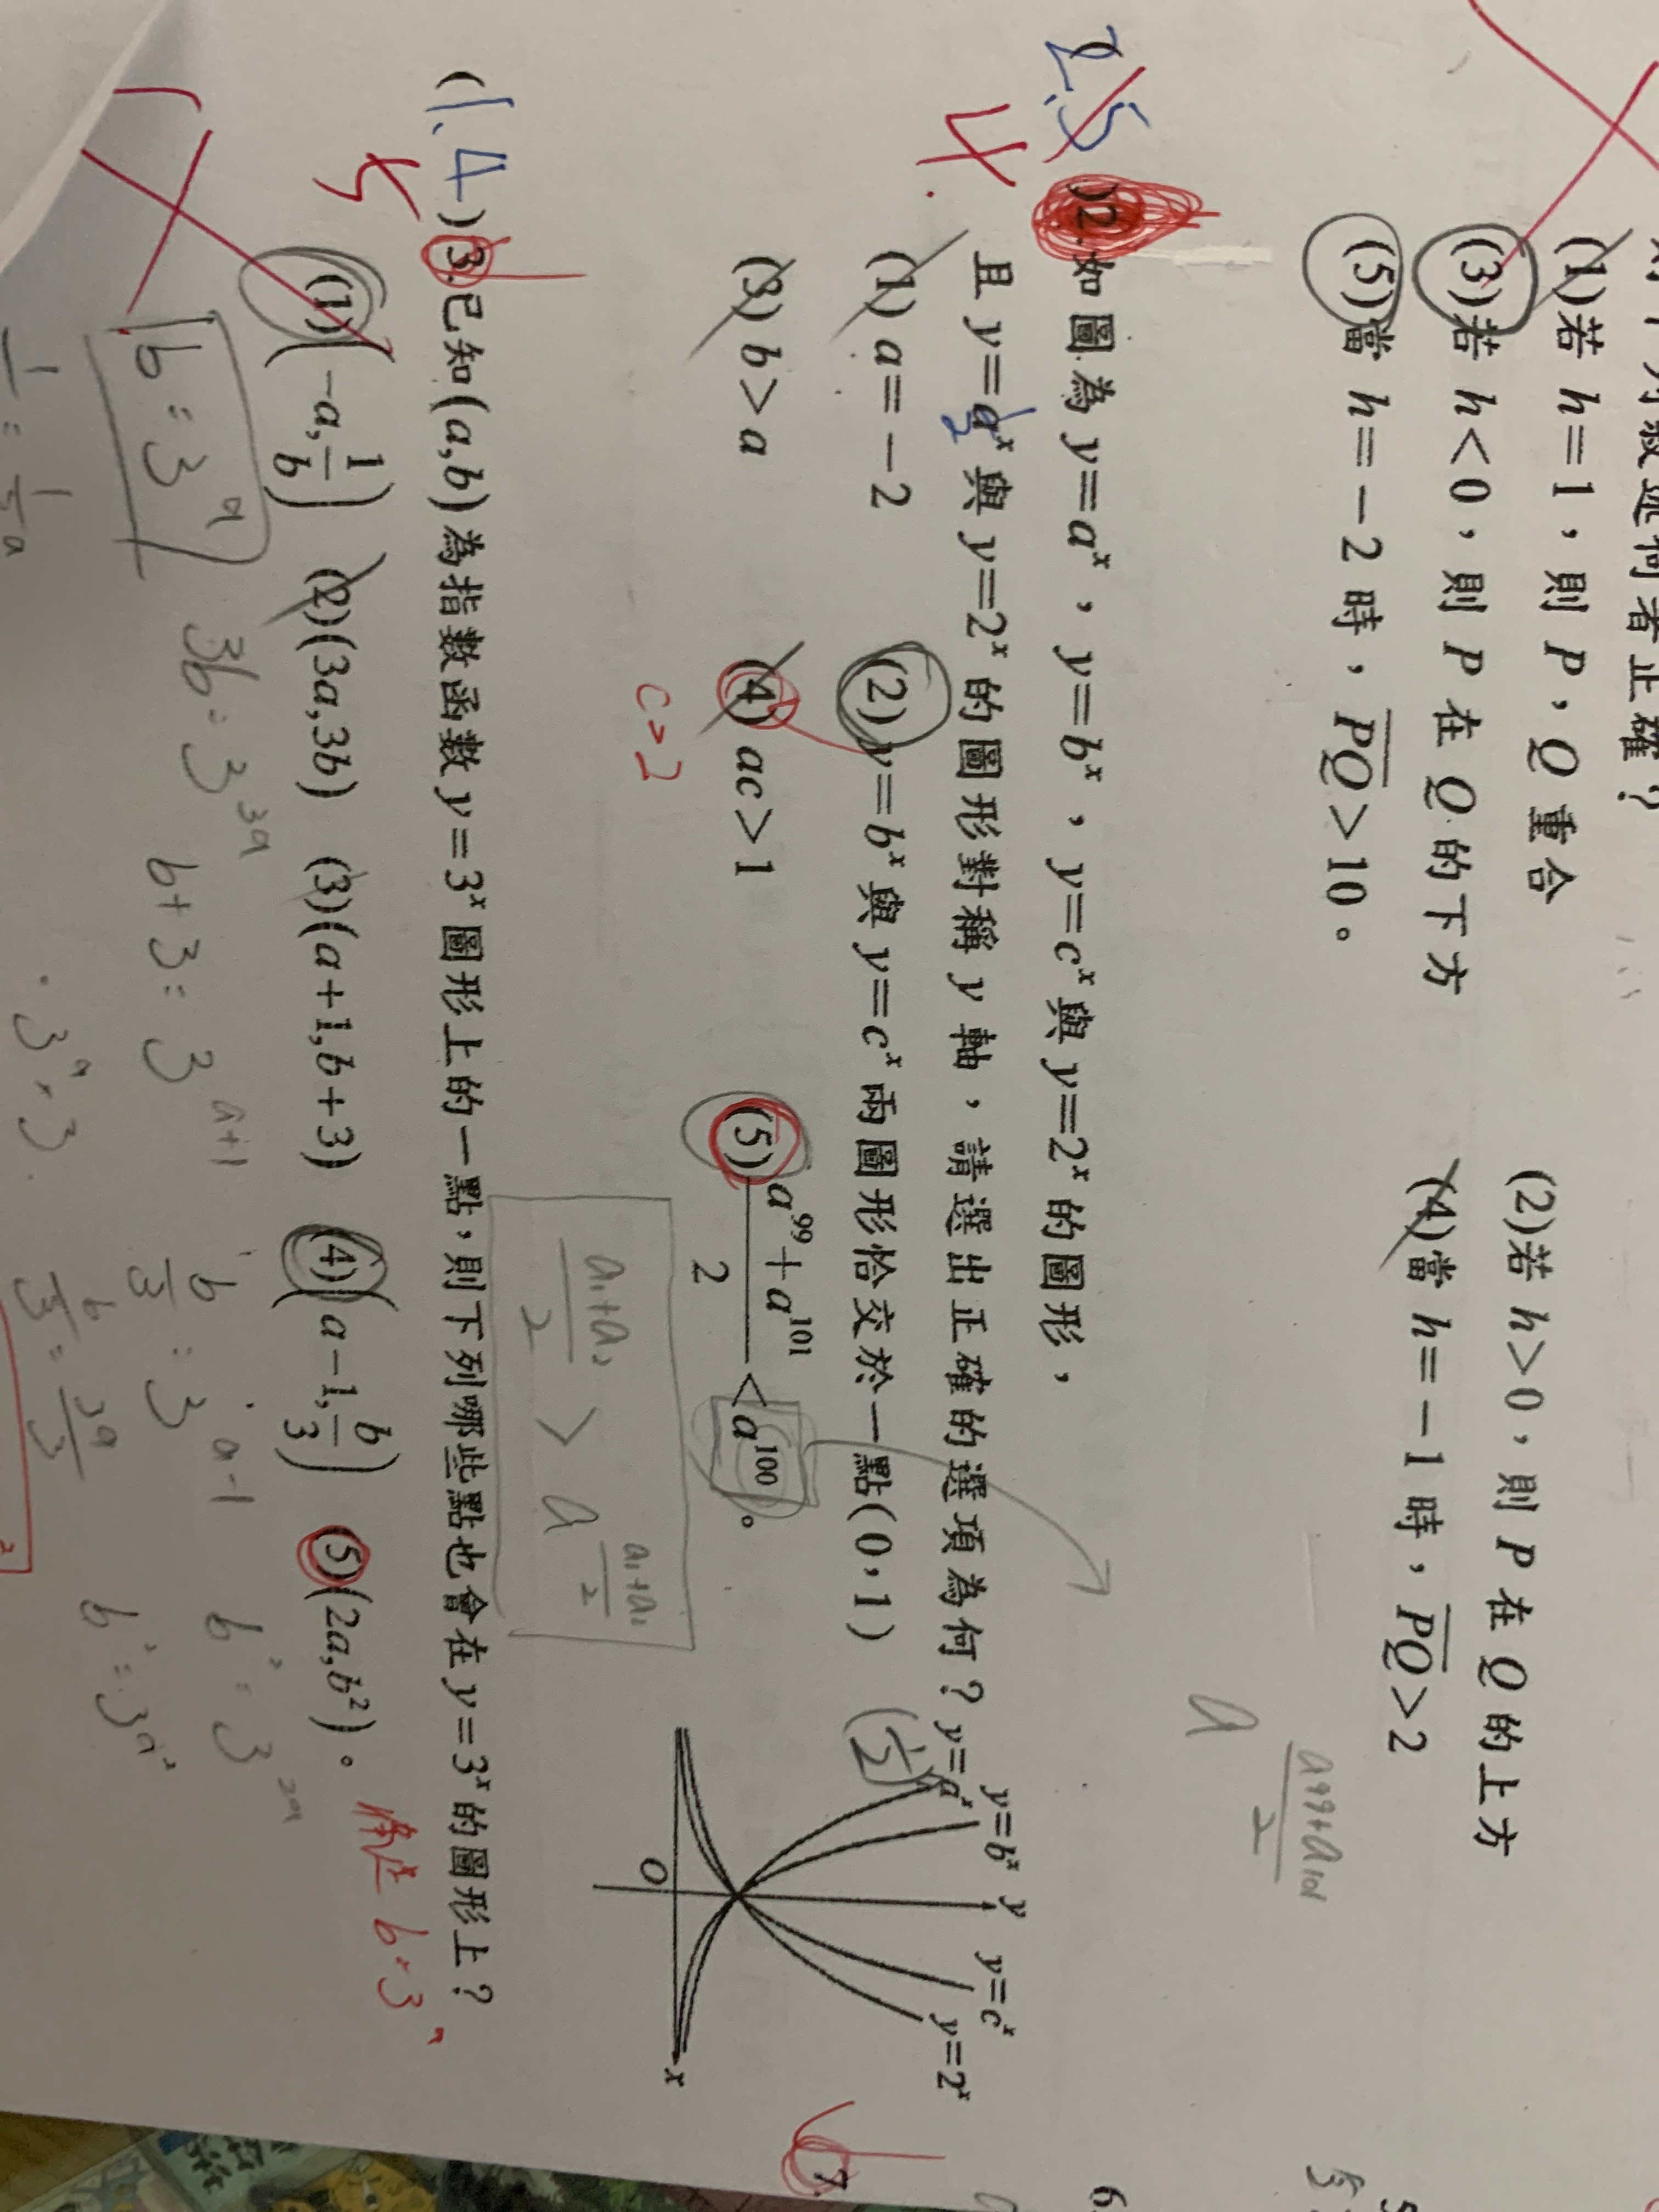 下列敘述何者正確？
(1)若 h=1，則 P，Q 重合
(2)若 h>0，則 P 在 Q 的上方
(3)若 h<0，則 P 在 Q 的下方
(4)當 h=-1 時，PQ>2
(5)當 h=-2 時，PQ>10。
a a99+a101/2
(2.5) 2.如圖為 y=a^x，y=b^x，y=c^x 與 y=2^x 的圖形，
4
且 y=a^x 與 y=2^x 的圖形對稱 y 軸，請選出正確的選項為何？
1/2
(1) a=-2 (2) y=b^x 與 y=c^x 兩圖形恰交於一點(0，1)
(3) b>a (4) ac>1 (5) a^99+a^101/2<a^100。
c>2
a1+a2/2 > a a1+a2/2
y=a^x y=b^x y y=c^x y=2^x
(1/2)
O x
(1.4) 3.已知(a,b)為指數函數 y=3^x 圖形上的一點，則下列哪些點也會在 y=3^x 的圖形上？
5
(1)(-a,1/b) (2)(3a,3b) (3)(a+1,b+3) (4)(a-1,b/3) (5)(2a,b²)。
b×3
b=3^a
3b=3^3a
b+3=3^a+1
3^a×3
b/3=3^a-1
b/3=3^a/3
b²=3^2a
b²=3a²
6.
7.